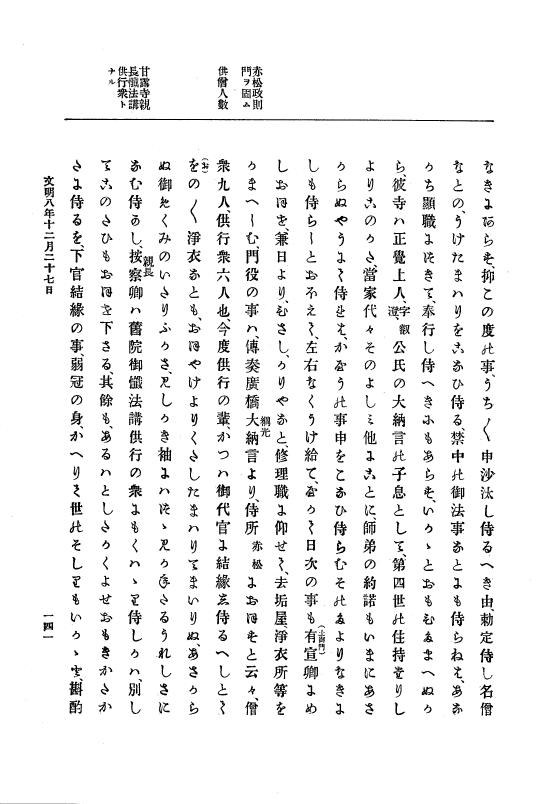 赤松政則
門ヲ固ム
供僧人數
甘露寺親
長懺法講
供行衆ト
ナル
なきにあらす、抑この度の事、うち〱申沙汰し侍るへき由、勅定侍し名僧
なとの、うけたまハりをこなひ侍る、禁中の御法事なとにも侍らねは、あな
かち顯職につきて、奉行し侍へきにもあらす、いかゝとおもひたまへぬか
ら、彼寺ハ正覺上人、字叡澄公氏の大納言の子息として、第四世の住持たりし
よりこのかた、當家代々そのよしミ他にことに師弟の約諾もいまにあさ
からぬやうに侍れは、かたうの事申をこなひ侍らむその たよりなきに
しも侍らしとおほえて、左右なくうけ給て、日次の事も有宣卿(土御門)にめ
しおほせ、兼日より、むさし、かりやなと、修理職に仰せて、去垢屋、淨衣所等を
かまへしむ、門役の事ハ、傳奏廣橋大納言綱光より、侍所赤松におほすと云々、僧
衆九人、供行衆六人也、今度供行の輩、かつハ御代官に結縁を侍るへしとて
をの(お)〱淨衣なとも、おほやけよりくたしたまハりてまいりぬ、あさから
ぬ御めくみのいたりふかさ、袖にハうれしさに
なむ侍るし、按察卿親長ハ舊院御懺法講供行の衆にもくハゝり侍しかハ、別し
てこのたひもおほせ下さる、其餘も、あるハとしたかくよせおもきかたか
たに侍るを、下官結縁の事、弱冠の身、かへりて世のそしりもいかゝと、斟酌
文明八年十二月二十七日
一四一